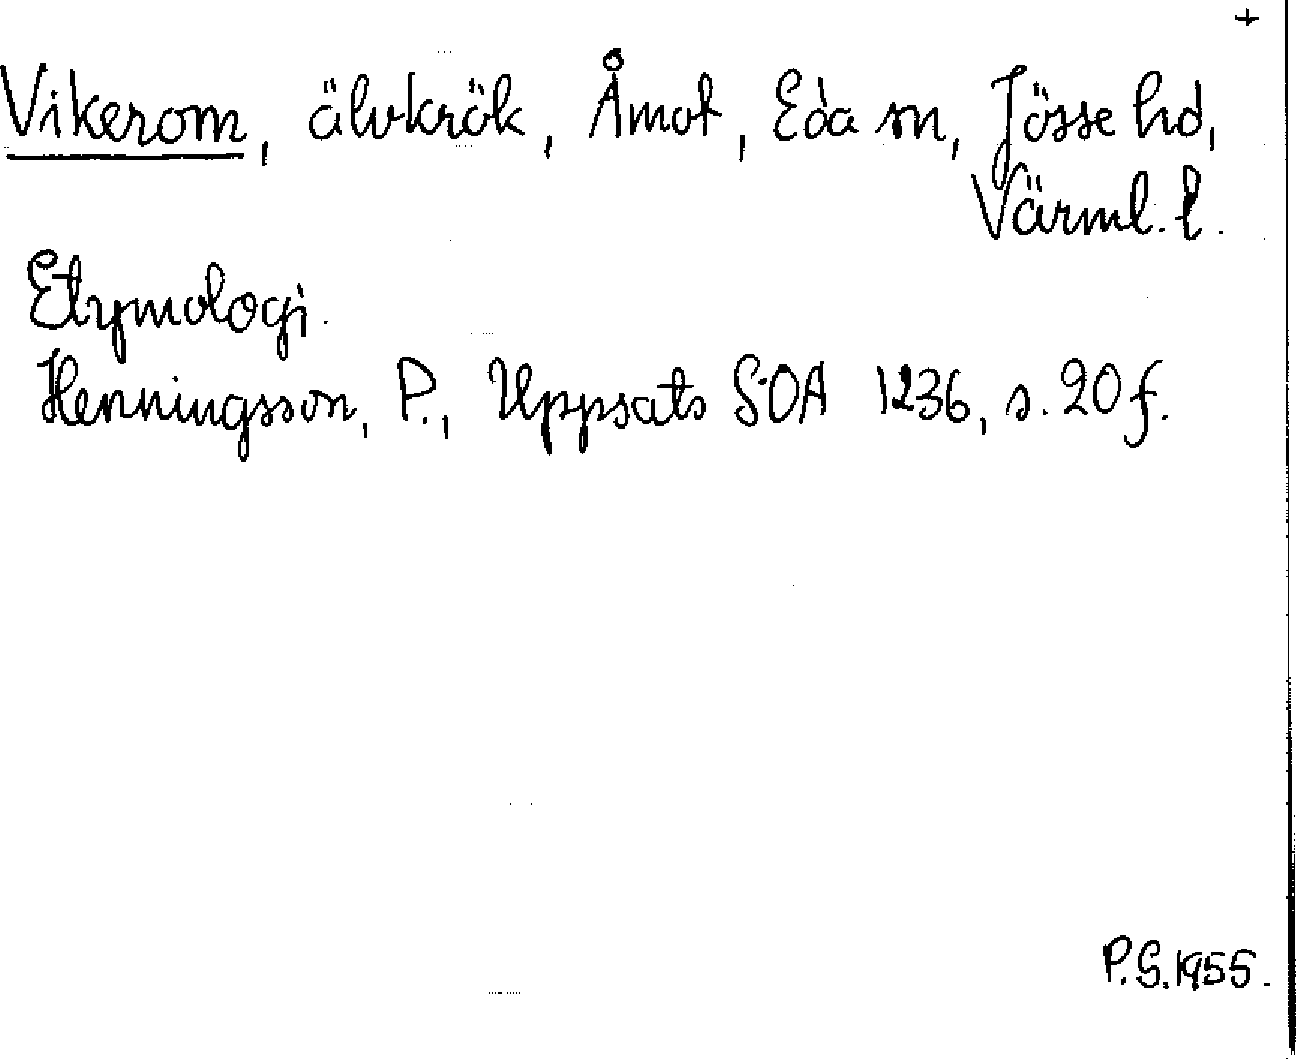 +
Vikerom, älvkrök, Åmot, Eda sn, Jösse hd,
Värml. l.
Etymologi.
Henningsson, P., Uppsats SOA 1236, s. 20 f.
P.G. 1955.